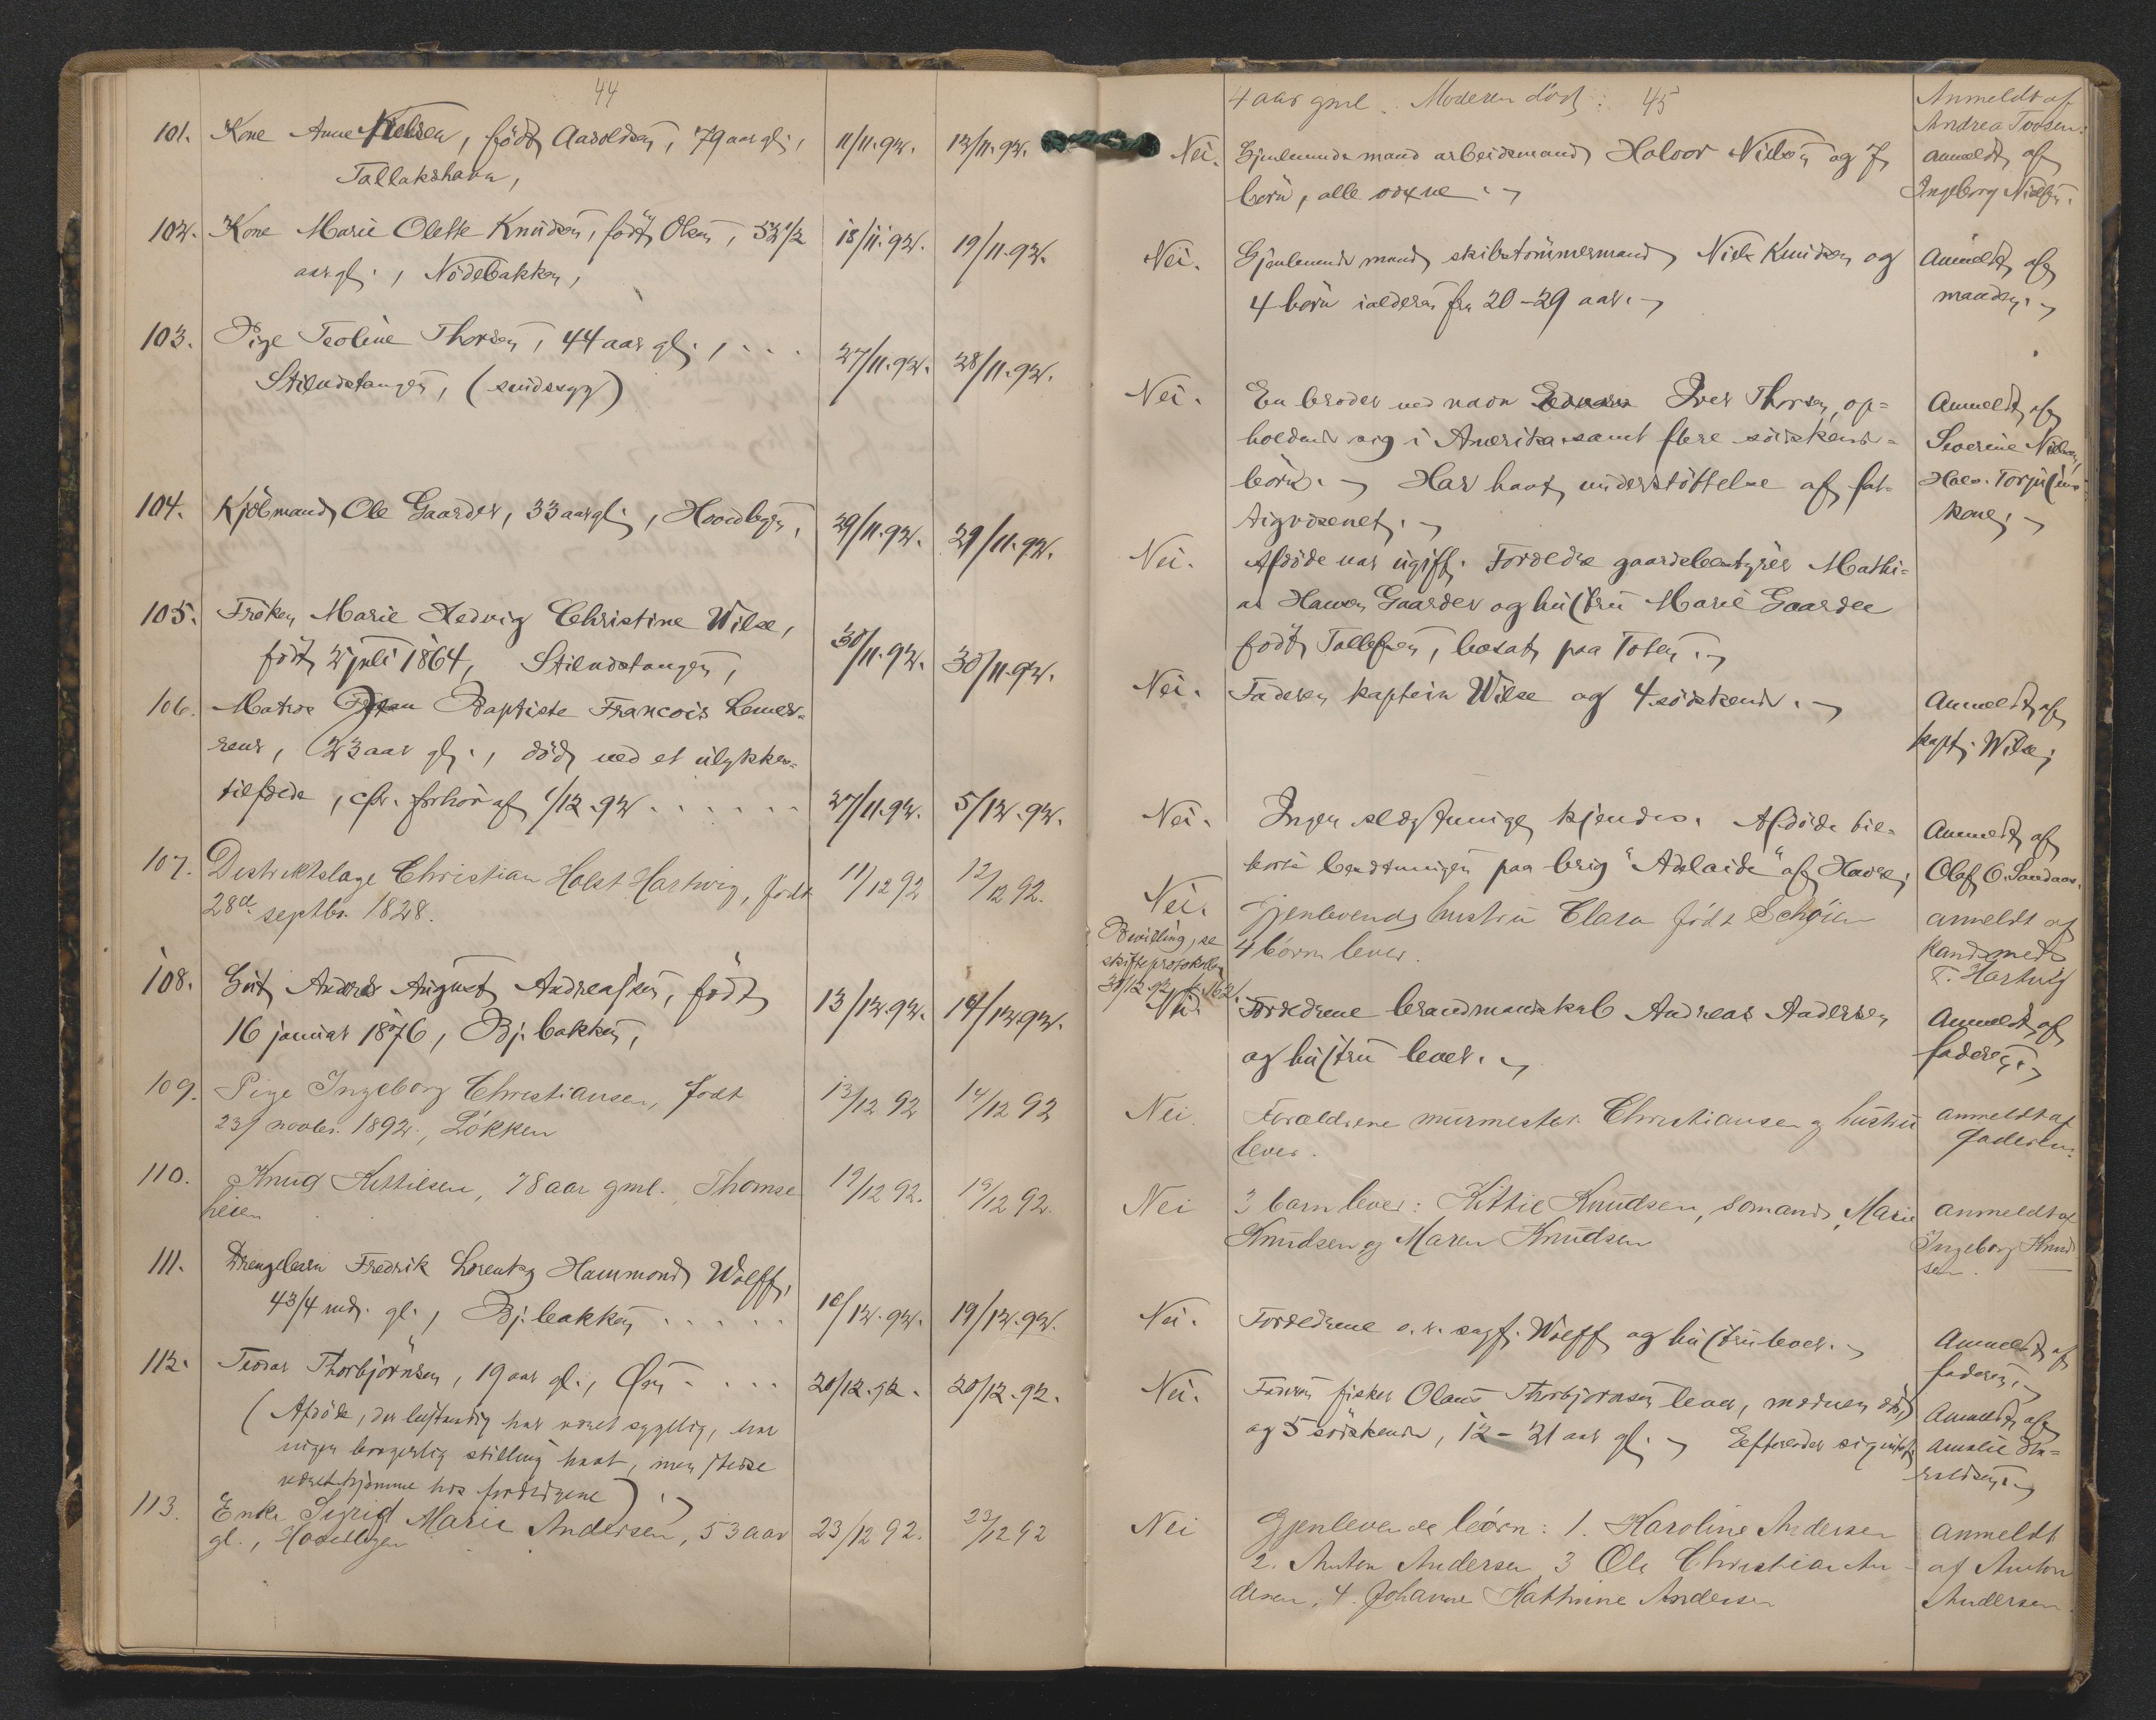 44
101. Kone Anne Nielsen, født Aaroldsen, 79 aar gl., 11/11.92. 12/11.92.
Tallakshavn,
102. Kone Marie Olette Knudsen, født Olsen, 52 1/2 18/11.92. 19/11.92.
aar gl., Nödebakken,
103. Pige Teoline Thorsen, 44 aar gl., . . . 27/11.92. 28/11.92.
Stilnestangen, (sindssyg)
104. Kjøbmand Ole Gaarder, 33 aar gl., 29/11.92. 29/11.92.
105. Frøken Marie Hedvig Christine Wilse, 30/11.92. 30/11.92.
født 2 juli 1864, Stilnestangen,
106. Matros Jean Baptiste Francois
23 aar gl., död ved et ulykkes-
tilfælde, cfr. forhör af 1/12.92 . . . . . . 27/11.92. 5/12.92.
107. Distriktslæge Christian Holst Hartwig, født 11/12 92 12/12 92.
28de septbr. 1828.
108. Gut Andreas August Andreassen, født 13/12.92. 14/12.92.
16 januar 1876, Bj. bakken,
109. Pige Ingeborg Christiansen, født 13/12 92 14/12 92
23/ novbr. 1892., Løkken
110. Knud Kittilsen, 78 aar gml. Thomse 19/12 92. 19/12 92.
heien
111. Drengebarn Fredrik Lorentz Hammond Wolff,
4 3/4 md. gl., Bj. bakken . . . . . 16/12.92. 19/12.92.
112. Teodor Thorbjørnsen, 19 aar gl., . . . . 20/12.92. 20/12.92.
(Afdöde, der bestandig har været sygelig, har
ingen borgerlig stilling havt, men stedse
været hjemme hos forældrene).
113. Enke Sigrid Marie Andersen, 53 aar 23/12 92. 23/12 92
gl.,
4 aar gml. Moderen død. 45 Anmeldt af
Andrea Torsen.
Nei. Gjenlevende mand arbeidsmand Halvor Nielsen og 7 anmeldt af
börn, alle voxne. Ingeborg Nielsen.
Nei. Gjenlevende mand skibstömmermand Niels Knudsen og Anmeldt af
4 börn i alderen fra 20-29 aar. manden.
Nei. En broder ved navn Iver Thorsen, op= Anmeldt af
holdende sig i Amerika samt flere söskende= Severine Nielsen,
börn. Har havt understöttelse af fat- Torjusens
tigvæsenet. kone.
Nei. Afdöde var ugift. Forældre gaardsbestyrer Mathi=
as Hansen Gaarder og hustru Marie Gaarder
født Tollefsen, bosat paa Toten.
Nei. Faderen kaptein Wilse og 4 söskende. Anmeldt af
kapt. Wilse.
Nei. Ingen slægtninge kjendes. Afdöde til- Anmeldt af
hørte besætningen paa brig "Adelaide" af Havre. Olaf O.
Nei. Gjenlevende hustru Clara født Schøien anmeldt af
4 börn lever. kand. med.
F. Hartwig
Bevilling, se
skifteprotokollen
30/12.92, f. 162.
Nei Forældrene brandmandskab Andreas Andersen Anmeldt af
og hustru lever. faderen.
Nei. Forældrene murmester Christiansen og hustru anmeldt af
lever. faderen.
Nei 3 barn lever: Kittil Knudsen, sømand, Marie anmeldt af
Knudsen og Maren Knudsen Ingeborg Knud
sen.
Nei. Forældrene o.r. sagf. Wolff og hustru lever. Anmeldt af
faderen.
Nei. Faderen fisker Olaus Thorbjørnsen lever, moderen död Anmeldt af
og 5 söskende, 12-21 aar gl. Efterlader sig intet. Amalie
Nei Gjenlevende börn: 1. Karoline Andersen anmeldt
2. Anton Andersen 3 Ole Christian An- af Anton
dersen, 4. Johanne Kathrine Andersen Andersen.